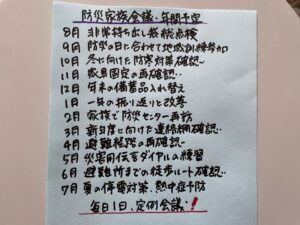 防災家族会議・年間予定
8月 非常持ち出し袋総点検
9月 防災の日に合わせて地域訓練参加
10月 冬に向けた防寒対策確認
11月 家具固定の再確認
12月 年末の備蓄品入れ替え
1月 一年の振り返りと改善
2月 家族で防災センター再訪
3月 新年度に向けた連絡網確認
4月 避難経路の再確認
5月 災害用伝言ダイヤルの練習
6月 避難所までの徒歩ルート確認
7月 夏の停電対策、熱中症予防
毎月1日、定例会議!